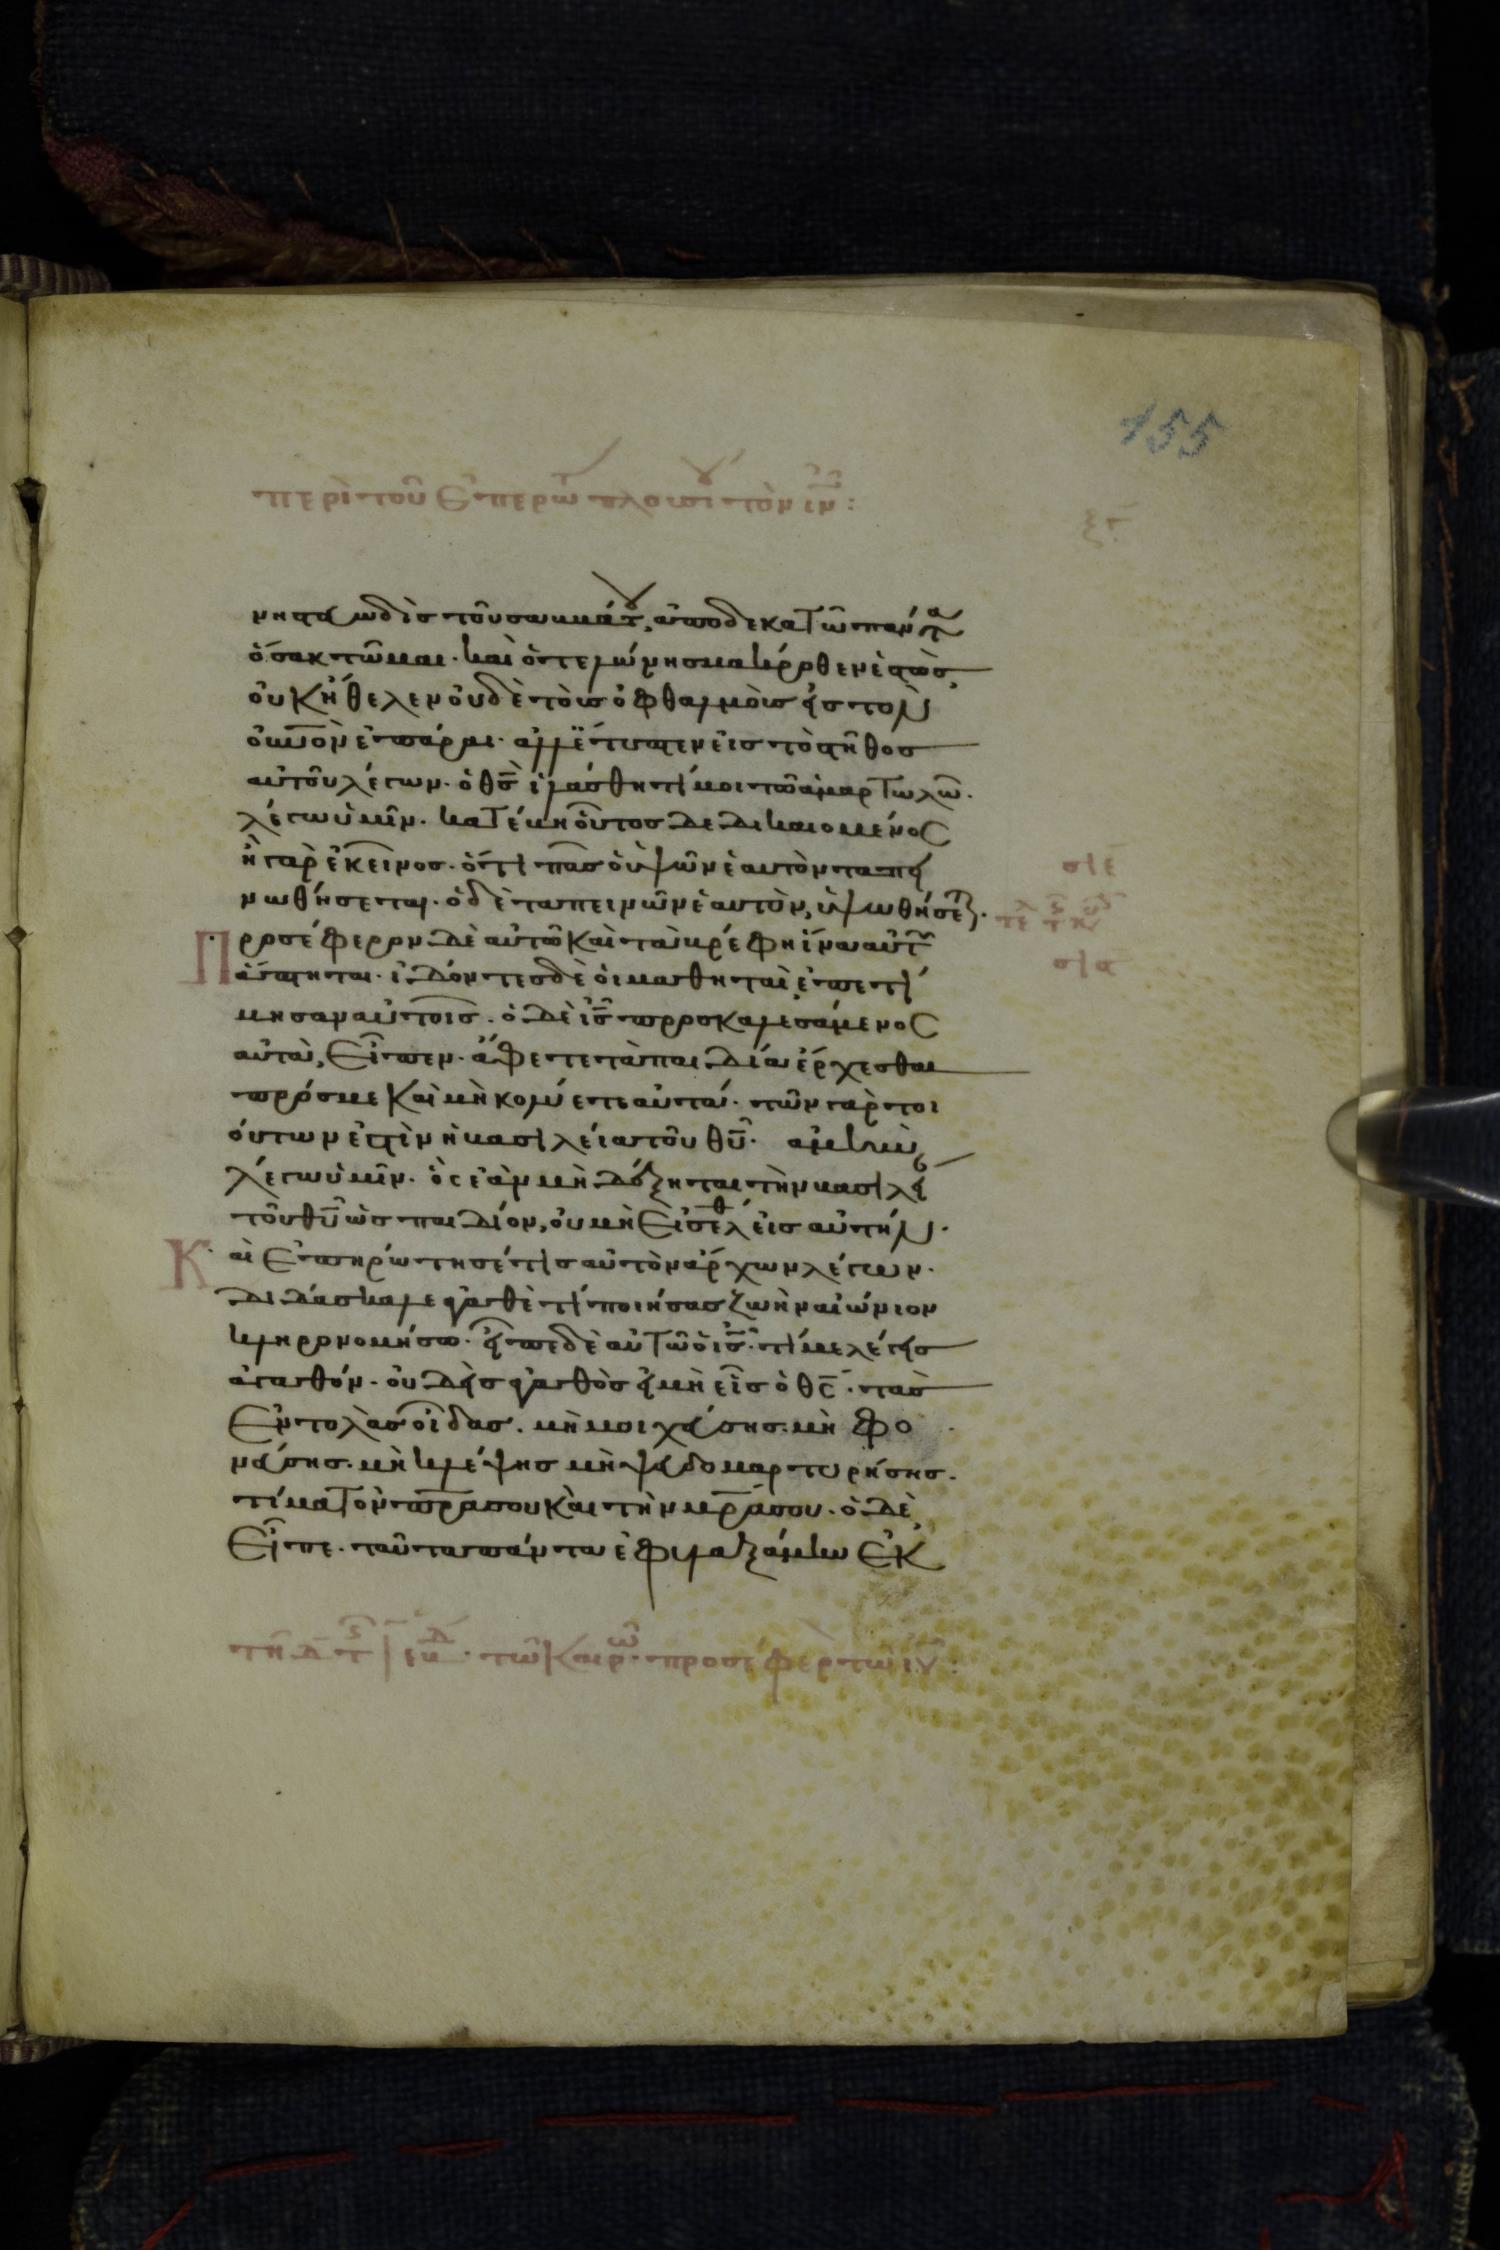 155
περὶ τοῦ ἐπερω πλουσί τὸν ἰν̅:
ξ̅
νηστεύω δὶς τοῦ σαββάτου, ἀποδεκατῶ πάντα
ὅσα κτῶμαι. καὶ ὁ τελώνης μακρόθεν ἑστὼς,
οὐκ ἤθελεν οὐδὲ τοὺς ὀφθαλμοὺς εἰς τὸν
οὐνὸν ἐπάραι. ἀλλ' ἔτυπτεν εἰς τὸ στῆθος
αὐτοῦ λέγων. ὁ θς̅ ἱλάσθητί μοι τῶ ἁμαρτωλῶ.
λέγω ὑμῖν. κατέβη οὗτος δεδικαιομένος
ἢ γὰρ ἐκεῖνος. ὅτι πᾶς ὁ ὑψῶν ἑαυτὸν ταπει
σιε
νωθήσεται. ὁ δὲ ταπεινῶν ἑαυτὸν, ὑψωθήσεται.
Προσέφερον δὲ αὐτῶ καὶ τὰ βρέφη ἵνα αὐτῶν
σια
ἅπτηται. ἰδόντες δὲ οἱ μαθηταὶ ἐπετί
μησαν αὐτοῖς. ὁ δὲ ις̅ προσκαλεσάμενος
αὐτὰ, εἶπεν. ἄφετε τὰ παιδία ἔρχεσθαι
πρός με καὶ μὴ κολύετε αὐτά. τῶν γὰρ τοι
ούτων ἐστὶν ἡ βασιλεία τοῦ θυ̅. ἀμὴν
λέγω ὑμῖν. ὃς ἐὰν μὴ δέξηται τὴν βασιλεί
τοῦ θυ̅ ὡς παιδίον, οὐ μὴ εἰσέλθ εἰς αὐτήν.
Καὶ ἐπηρώτησέ τις αὐτὸν ἄρχων λέγων.
διδάσκαλε ἀγαθὲ τί ποιήσας ζωὴν αἰώνιον
κληρονομήσω. εἶπε δὲ αὐτῶ ὁ ις̅. τί με λέγεις
ἀγαθόν. οὐδεὶς ἀγαθὸς εἰ μὴ εἷς ὁ θς̅. τὰς
ἐντολὰς οἶδας. μὴ μοιχεύσης. μὴ φο
νεύσης. μὴ κλέψης μὴ ψευδομαρτυρήσης.
τίμα τὸν πρ̅α σου καὶ τὴν μρ̅α σου. ὁ δὲ
εἶπε. ταῦτα πάντα ἐφυλαξάμην ἐκ
τῶ καιρῶ. προσέφερ τῶ ιυ̅: